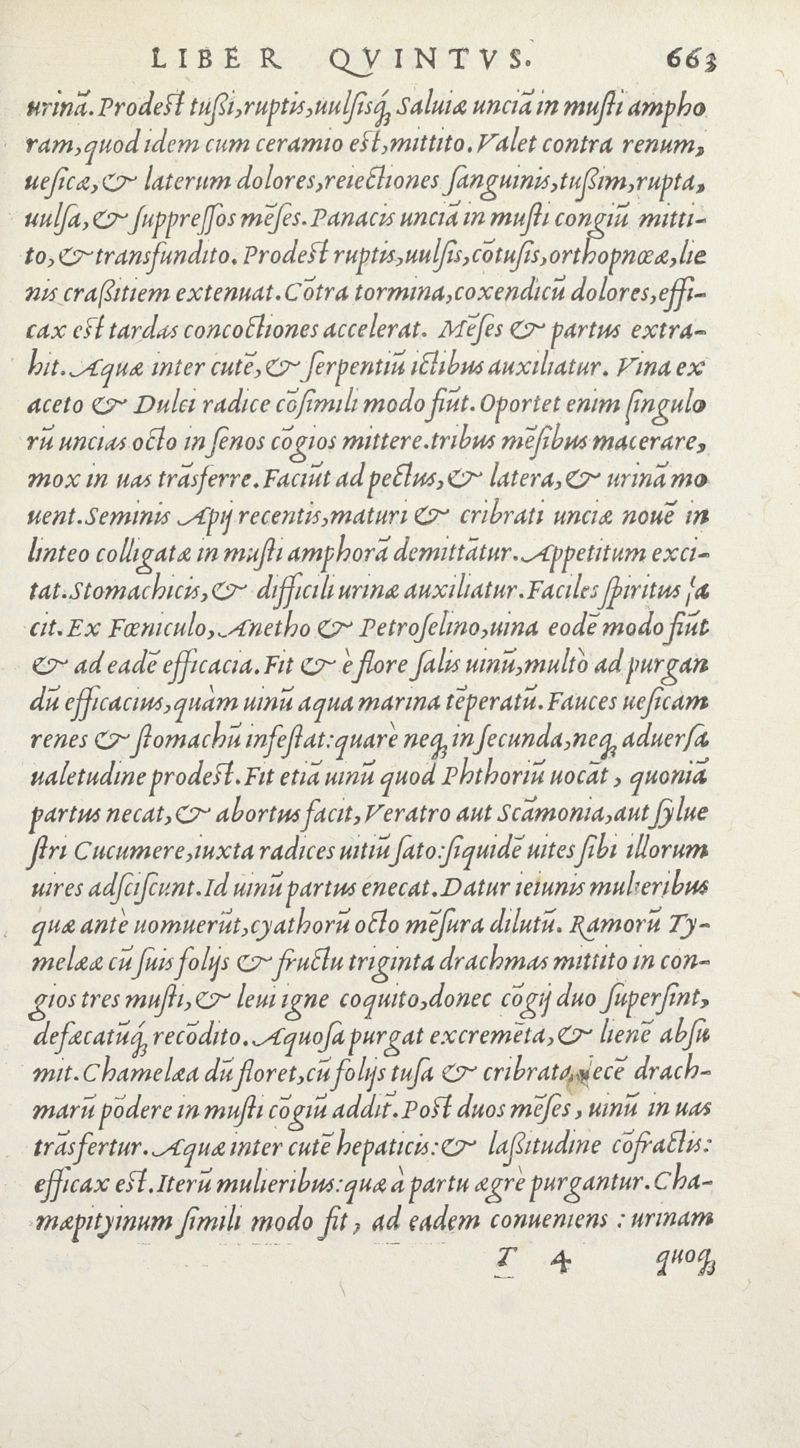 LIBER QVINTVS. 663
urinā. Prodest tußi, ruptis, uulsisq́; Saluiæ unciā in musti ampho
ram, quod idem cum ceramio est, mittito. Valet contra renum,
uesicæ, & laterum dolores, reiectiones sanguinis, tußim, rupta,
uulsa, & suppressos mēses. Panacis unciā in musti congiū mitti-
to, & transfundito. Prodest ruptis, uulsis, cōtusis, orthopnœæ, lie
nis craßitiem extenuat. Cōtra tormina, coxendicū dolores, effi-
cax est tardas concoctiones accelerat. Mēses & partus extra-
hit. Aquæ inter cutē, & serpentiū ictibus auxiliatur. Vina ex
aceto & Dulci radice cōsimili modo fiūt. Oportet enim singulo
rū uncias octo in senos cōgios mittere. tribus mēsibus macerare,
mox in uas trāsferre. Faciūt ad pectus, & latera, & urinā mo
uent. Seminis Apij recentis, maturi & cribrati unciæ nouē in
linteo colligatæ in musti amphorā demittātur. Appetitum exci-
tat. Stomachicis, & difficili urinæ auxiliatur. Faciles spiritus fa
cit. Ex Fœniculo, Anetho & Petroselino, uina eodē modo fiūt
& ad eadē efficacia. Fit & è flore salis uinū, multò ad purgan
dū efficacius, quàm uinū aqua marina tēperatū. Fauces uesicam
renes & stomachū infestat: quare neq; in secunda, neq; aduersa
ualetudine prodest. Fit etiā uinū quod Phthoriū uocāt, quoniā
partus necat, & abortus facit, Veratro aut Scāmonia, aut sylue
stri Cucumere, iuxta radices uitiū sato: siquidē uites sibi illorum
uires adsciscunt. Id uinū partus enecat. Datur ieiunis mulieribus
quæ antè uomuerūt, cyathorū octo mēsura dilutū. Ramorū Ty-
melææ cū suis folijs & fructu triginta drachmas mittito in con-
gios tres musti, & leui igne coquito, donec cōgij duo supersint,
defæcatūq́; recōdito. Aquosa purgat excremēta, & lienē absu
mit. Chamelæa dū floret, cū folijs tusa & cribrata, decē drach-
marū pōdere in musti cōgiū addit̄. Post duos mēses, uinū in uas
trāsfertur. Aquæ inter cutē hepaticis: & laßitudine cōfractis:
efficax est. Iterū mulieribus: quæ à partu ægrè purgantur. Cha-
mæpityinum simili modo fit, ad eadem conueniens : urinam
T 4 quoq;